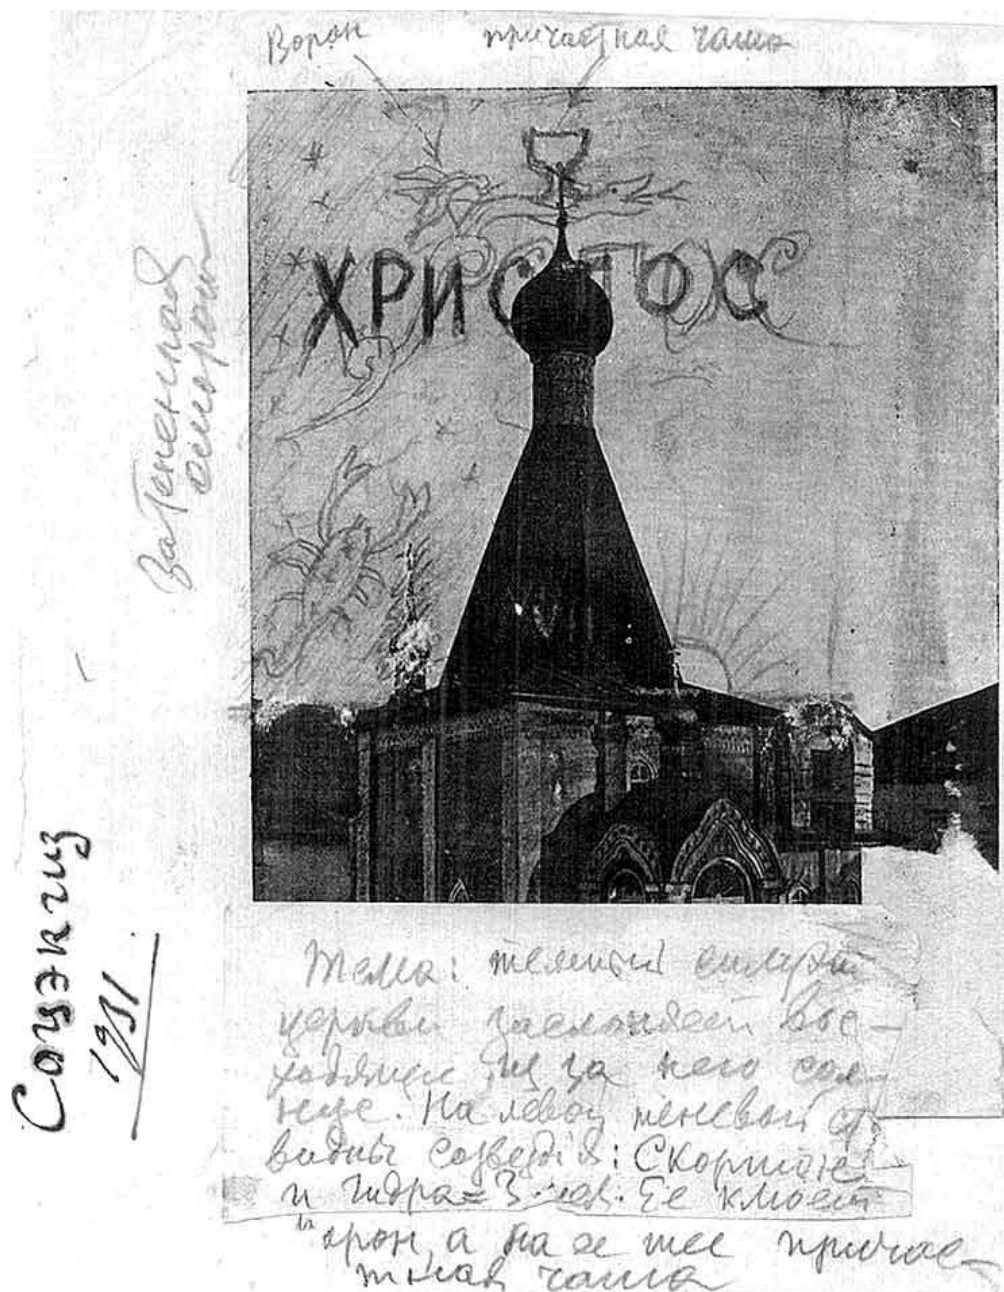 Ворон причастная чаша
ХРИСТОС
Затененная
сторона
Соцэкгиз
1931
Тема: темный силуэт
церкви заслоняет вос-
ходящее из за него сол-
нце. На левой теневой ст.
видны созвездія: Скорпионъ
и гидра = Змея. Ее клюет
ворон, а на ее шее причас-
тная чаша